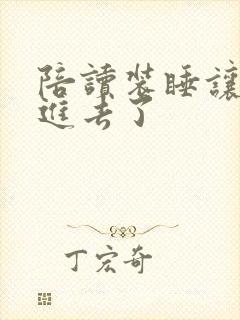 陪讀裝睡讓
進去了
丁宏奇